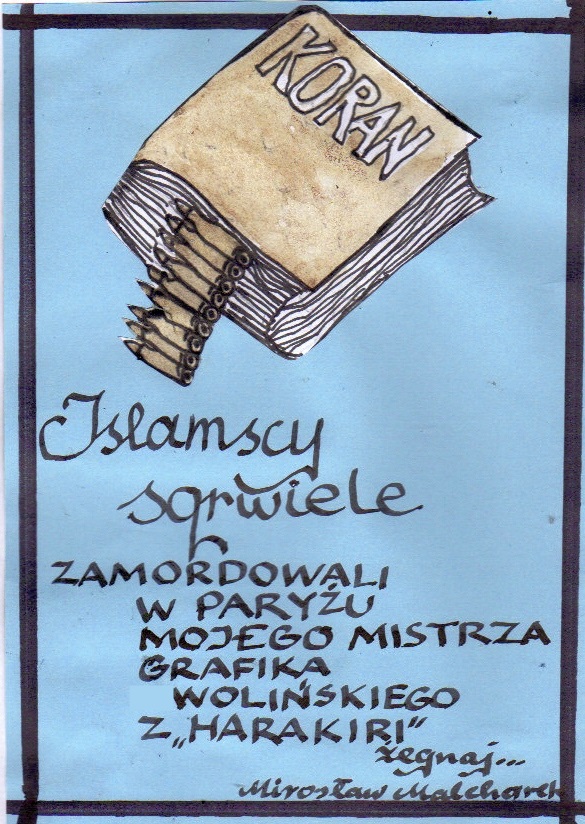 KORAN
Islamscy
sqrwiele
ZAMORDOWALI
W PARYŻU
MOJEGO MISTRZA
GRAFIKA
WOLIŃSKIEGO
Z „HARAKIRI”
żegnaj...
Mirosław Malcharek